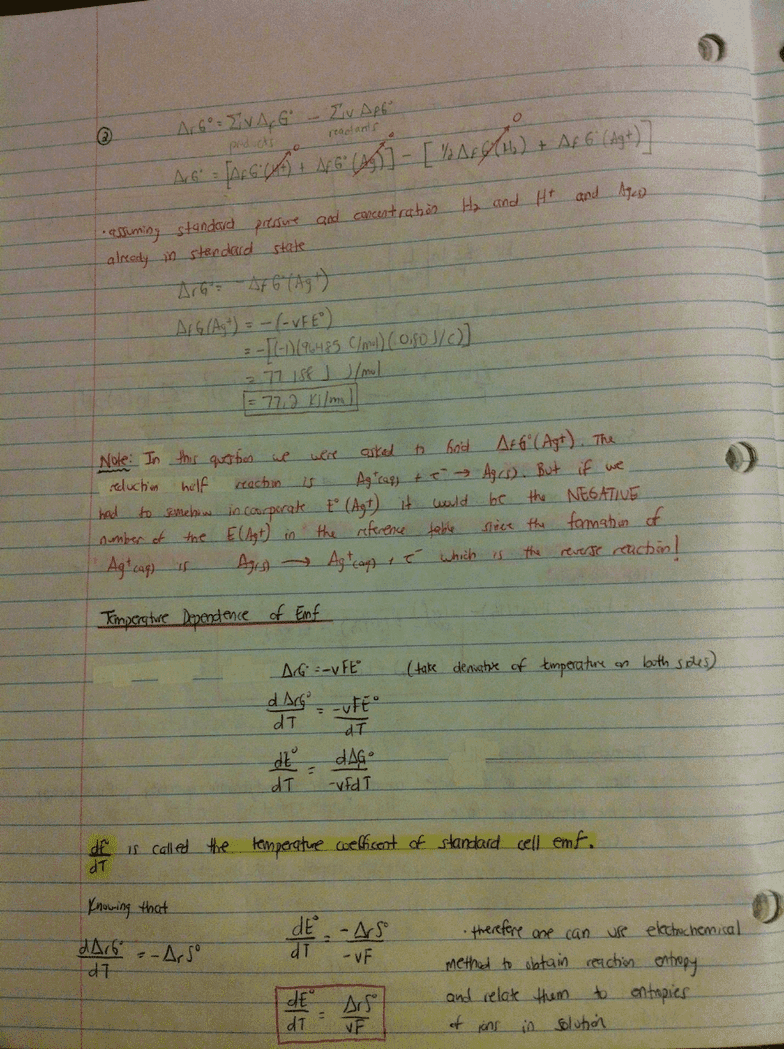 ② ΔrG° = Σν ΔfG° − Σν ΔfG°
products reactants
ΔrG° = [ΔfG°(H+) + ΔfG°(Ag)] − [½ΔfG°(H₂) + ΔfG°(Ag+)]
0 0 0
· assuming standard pressure and concentration H₂ and H+ and Ag(s)
already in standard state
ΔrG° = −ΔfG°(Ag+)
ΔfG(Ag+) = −(−νFE°)
= −[(−1)(96485 C/mol)(0.80 J/C)]
= 77 188 J J/mol
= 77.2 KJ/mol
Note: In this question we were asked to find ΔfG°(Ag+). The
reduction half reaction is Ag+(aq) + e⁻ → Ag(s). But if we
had to somehow incoorporate E°(Ag+) it would be the NEGATIVE
number of the E(Ag+) in the reference table since the formation of
Ag+(aq) is Ag(s) → Ag+(aq) + e⁻ which is the reverse reaction!
Temperature Dependence of Emf
ΔrG° = −νFE° (take derivative of temperature on both sides)
dΔrG°/dT = −νFE°/dT
dE°/dT = dΔG°/−νFdT
dE°/dT is called the temperature coefficent of standard cell emf.
Knowing that
dΔrG°/dT = −ΔrS°
dE°/dT = −ΔrS°/−νF
dE°/dT = ΔrS°/νF
· therefore one can use electrochemical
method to obtain reaction entropy
and relate them to entropies
of ions in solution